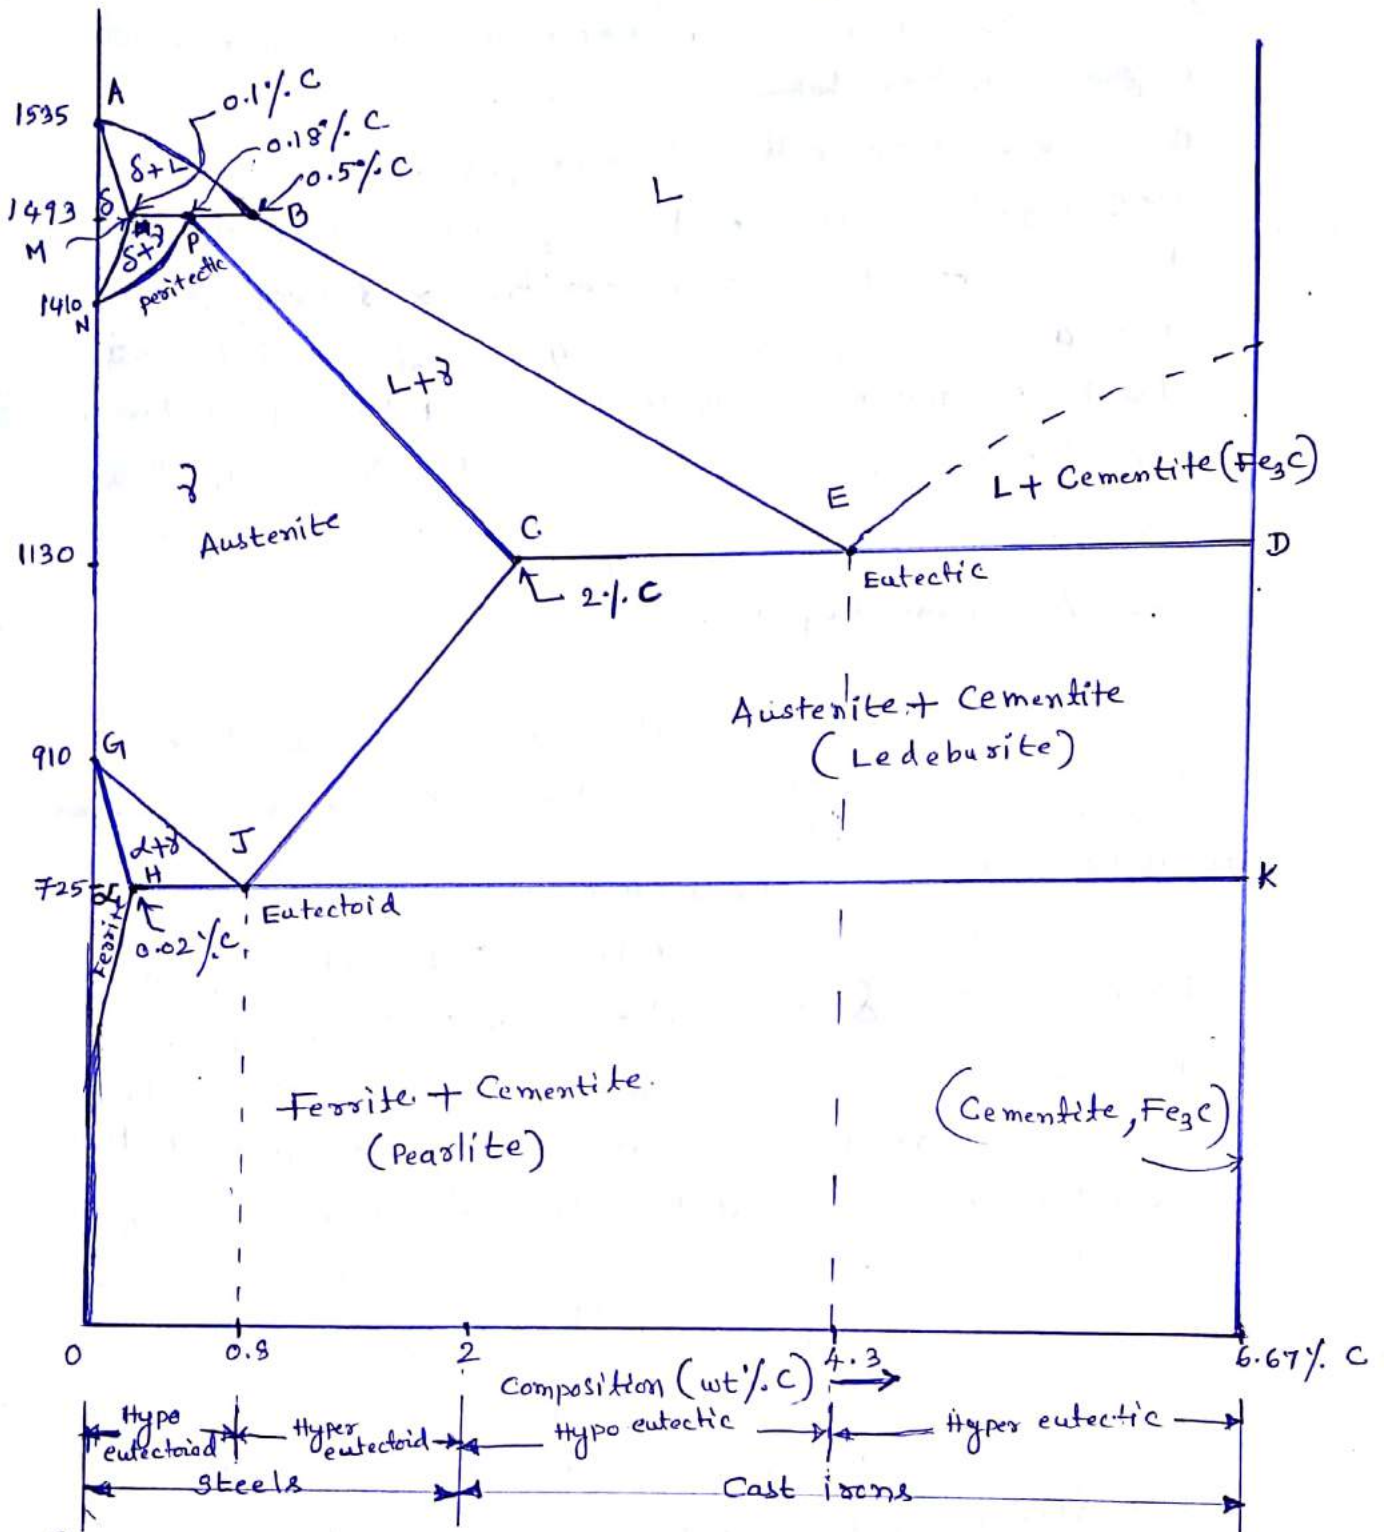 A
0.1% C
1535
0.18% C
δ+L
0.5% C
L
δ
1493
B
M
P
δ+γ
peritectic
1410
N
L+γ
γ
L+ Cementite (Fe3C)
E
Austenite
C
D
1130
Eutectic
2% C
Austenite + Cementite
(Ledeburite)
G
910
α+γ
J
H
725
α
K
Ferrite
Eutectoid
0.02% C
Ferrite + Cementite.
(Pearlite)
(Cementite, Fe3C)
0
0.8
2
4.3
6.67% C
Composition (wt% C)
Hypo eutectoid
Hyper eutectoid
Hypo eutectic
Hyper eutectic
Steels
Cast irons